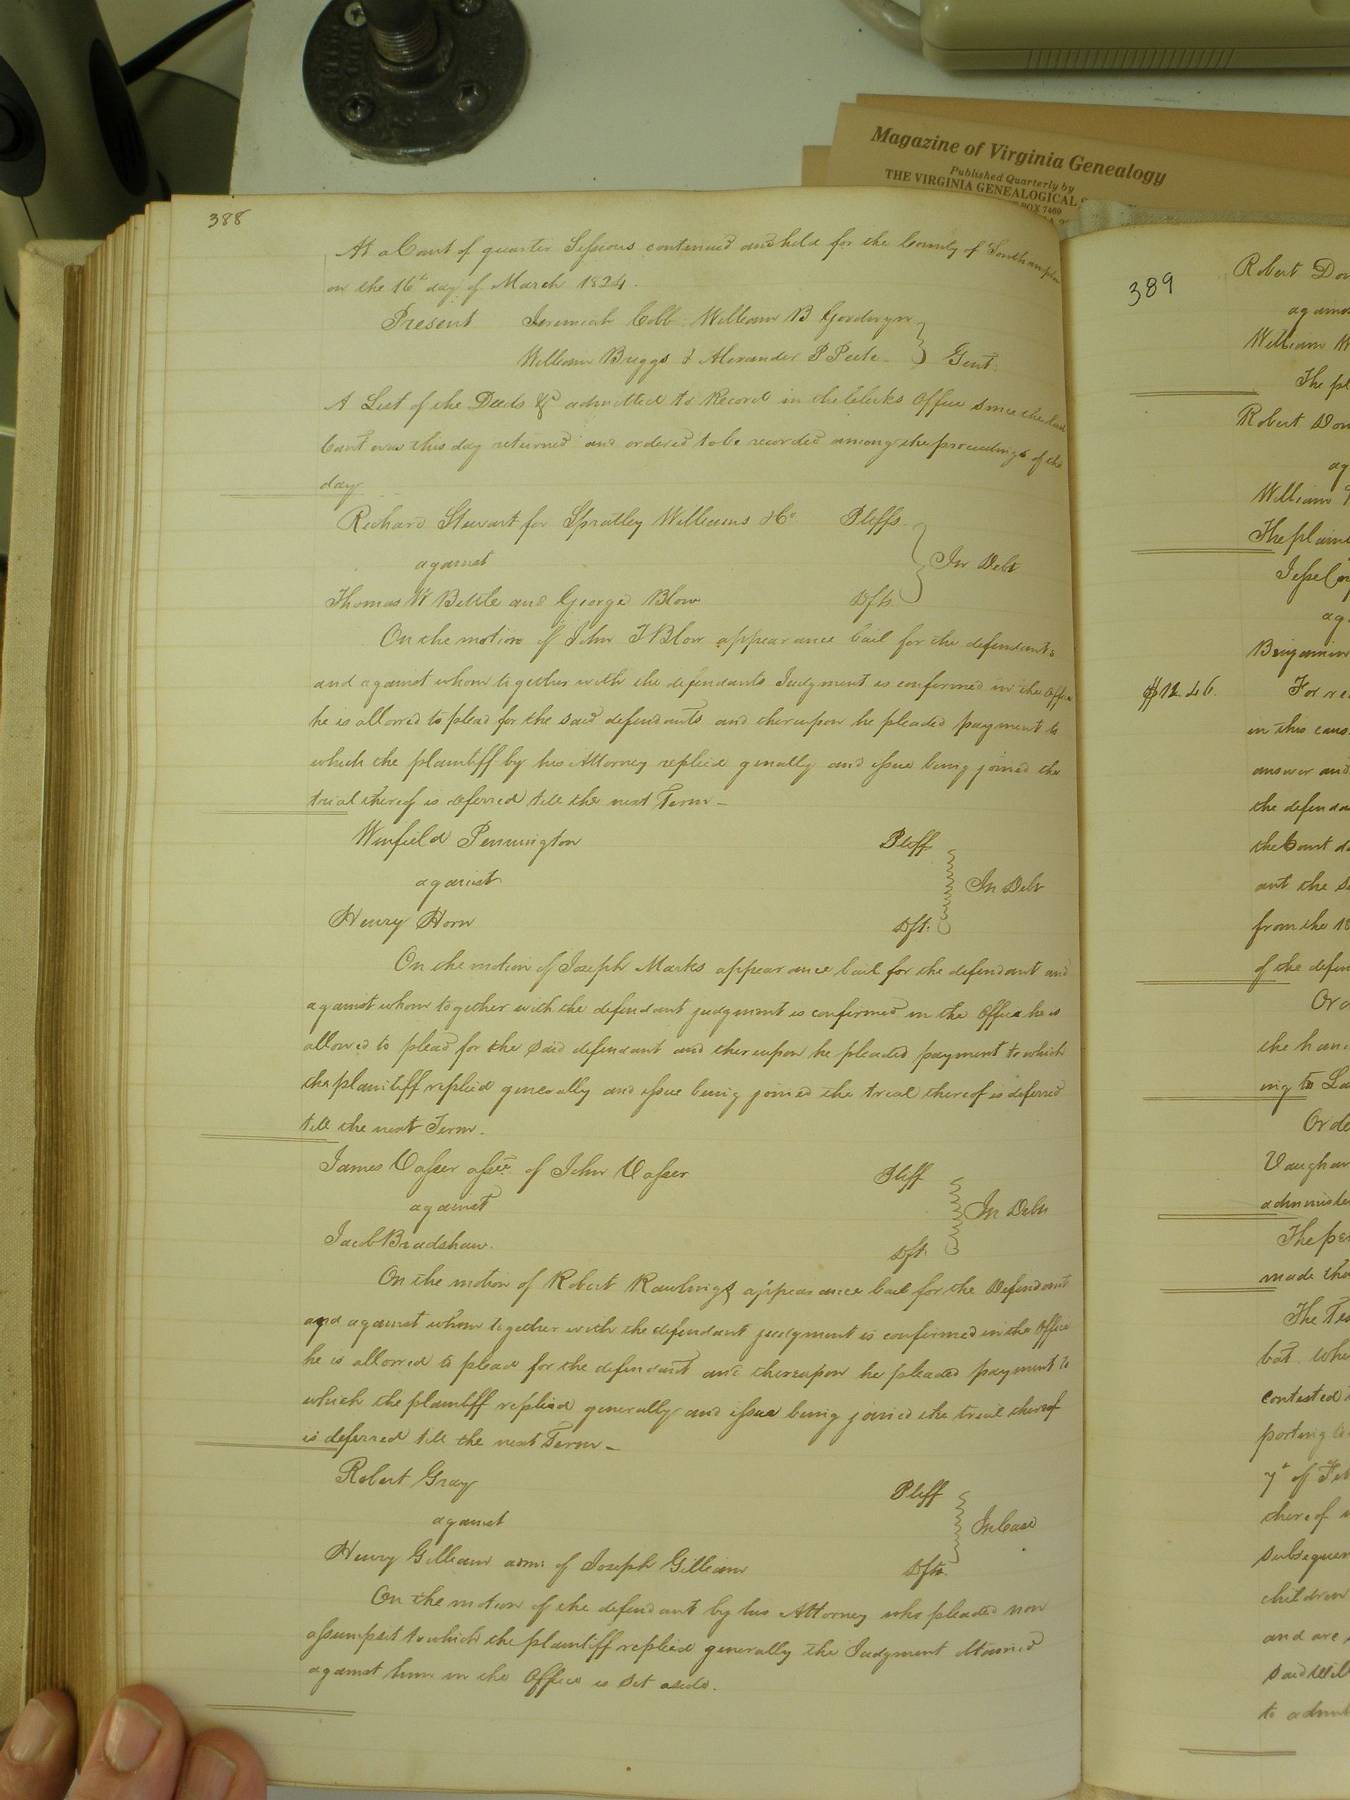 Magazine of Virginia Genealogy
Published Quarterly by
THE VIRGINIA GENEALOGICAL
BOX 7469
388
At a Court of quarter Sessions continued and held for the County of Southampton
on the 16th day of March 1824.
Present Jeremiah Cobb William B Goodwyn
William Briggs & Alexander P Peete Gent.
A List of the Deeds &c admitted to Record in the Clerks Office since the last
Court was this day returned and ordered to be recorded among the proceedings of the
day
Richard Stewart for Spratley Williams & Co Pltffs
against
In Debt
Thomas W Bettle and George Blow Dfts
On the motion of John T Blow appearance bail for the defendants
and against whom together with the defendants Judgment is confirmed in the Office
he is allowed to plead for the said defendants and thereupon he pleaded payment to
which the plaintiff by his Attorney replied genally and issue being joined the
trial thereof is deferred till the next Term -
Winfield Pennington Pltff
against In Debt
Henry Horn Dft.
On the motion of Joseph Marks appearance bail for the defendant and
against whom together with the defendant judgment is confirmed in the Office he is
allowed to plead for the said defendant and thereupon he pleaded payment to which
the plaintiff replied generally and issue being joined the trial thereof is deferred
till the next Term.
James Vasser assee of John Vasser Pltff
against In Debt
Jacob Bradshaw. Dft.
On the motion of Robert Rawlings appearance bail for the Defendant
and against whom together with the defendant judgment is confirmed in the Office
he is allowed to plead for the defendant and thereupon he pleaded payment to
which the plaintiff replied generally and issue being joined the trial thereof
is deferred till the next Term -
Robert Gray Pltff
against In Case
Henry Gilliam adm: of Joseph Gilliam Dfts
On the motion of the defendant by his Attorney who pleaded non
assumpsit to which the plaintiff replied generally the Judgment obtained
against him in the Office is set aside.
389
Robert
William W
The
Robert
William
The
Benjamin
$12.46.
For
in this
answer and
the
the Court
ant the
from the
of the
the
ing to
Vaughan
The
made
The
but
contested
porting
7th of
thereof
subsequen
children
and are
said
to